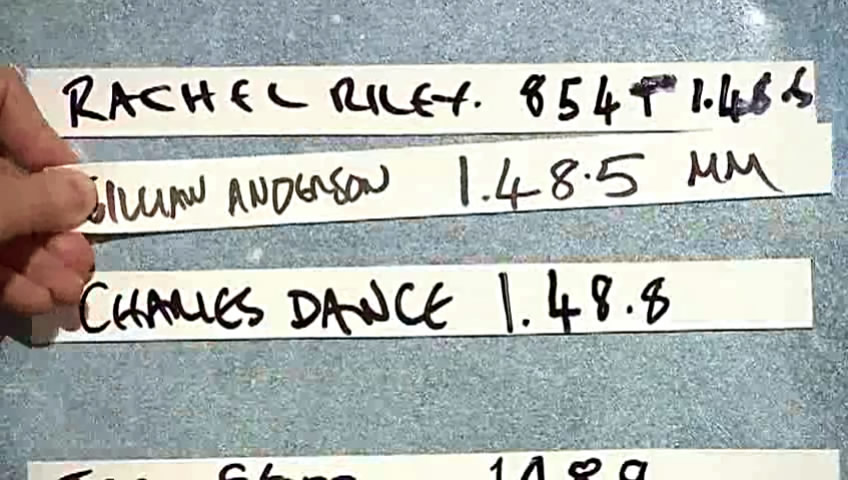 RACHEL RILEY. 854T 1.48.
GILLIAN ANDERSON 1.48.5 MM
CHARLES DANCE 1.48.8